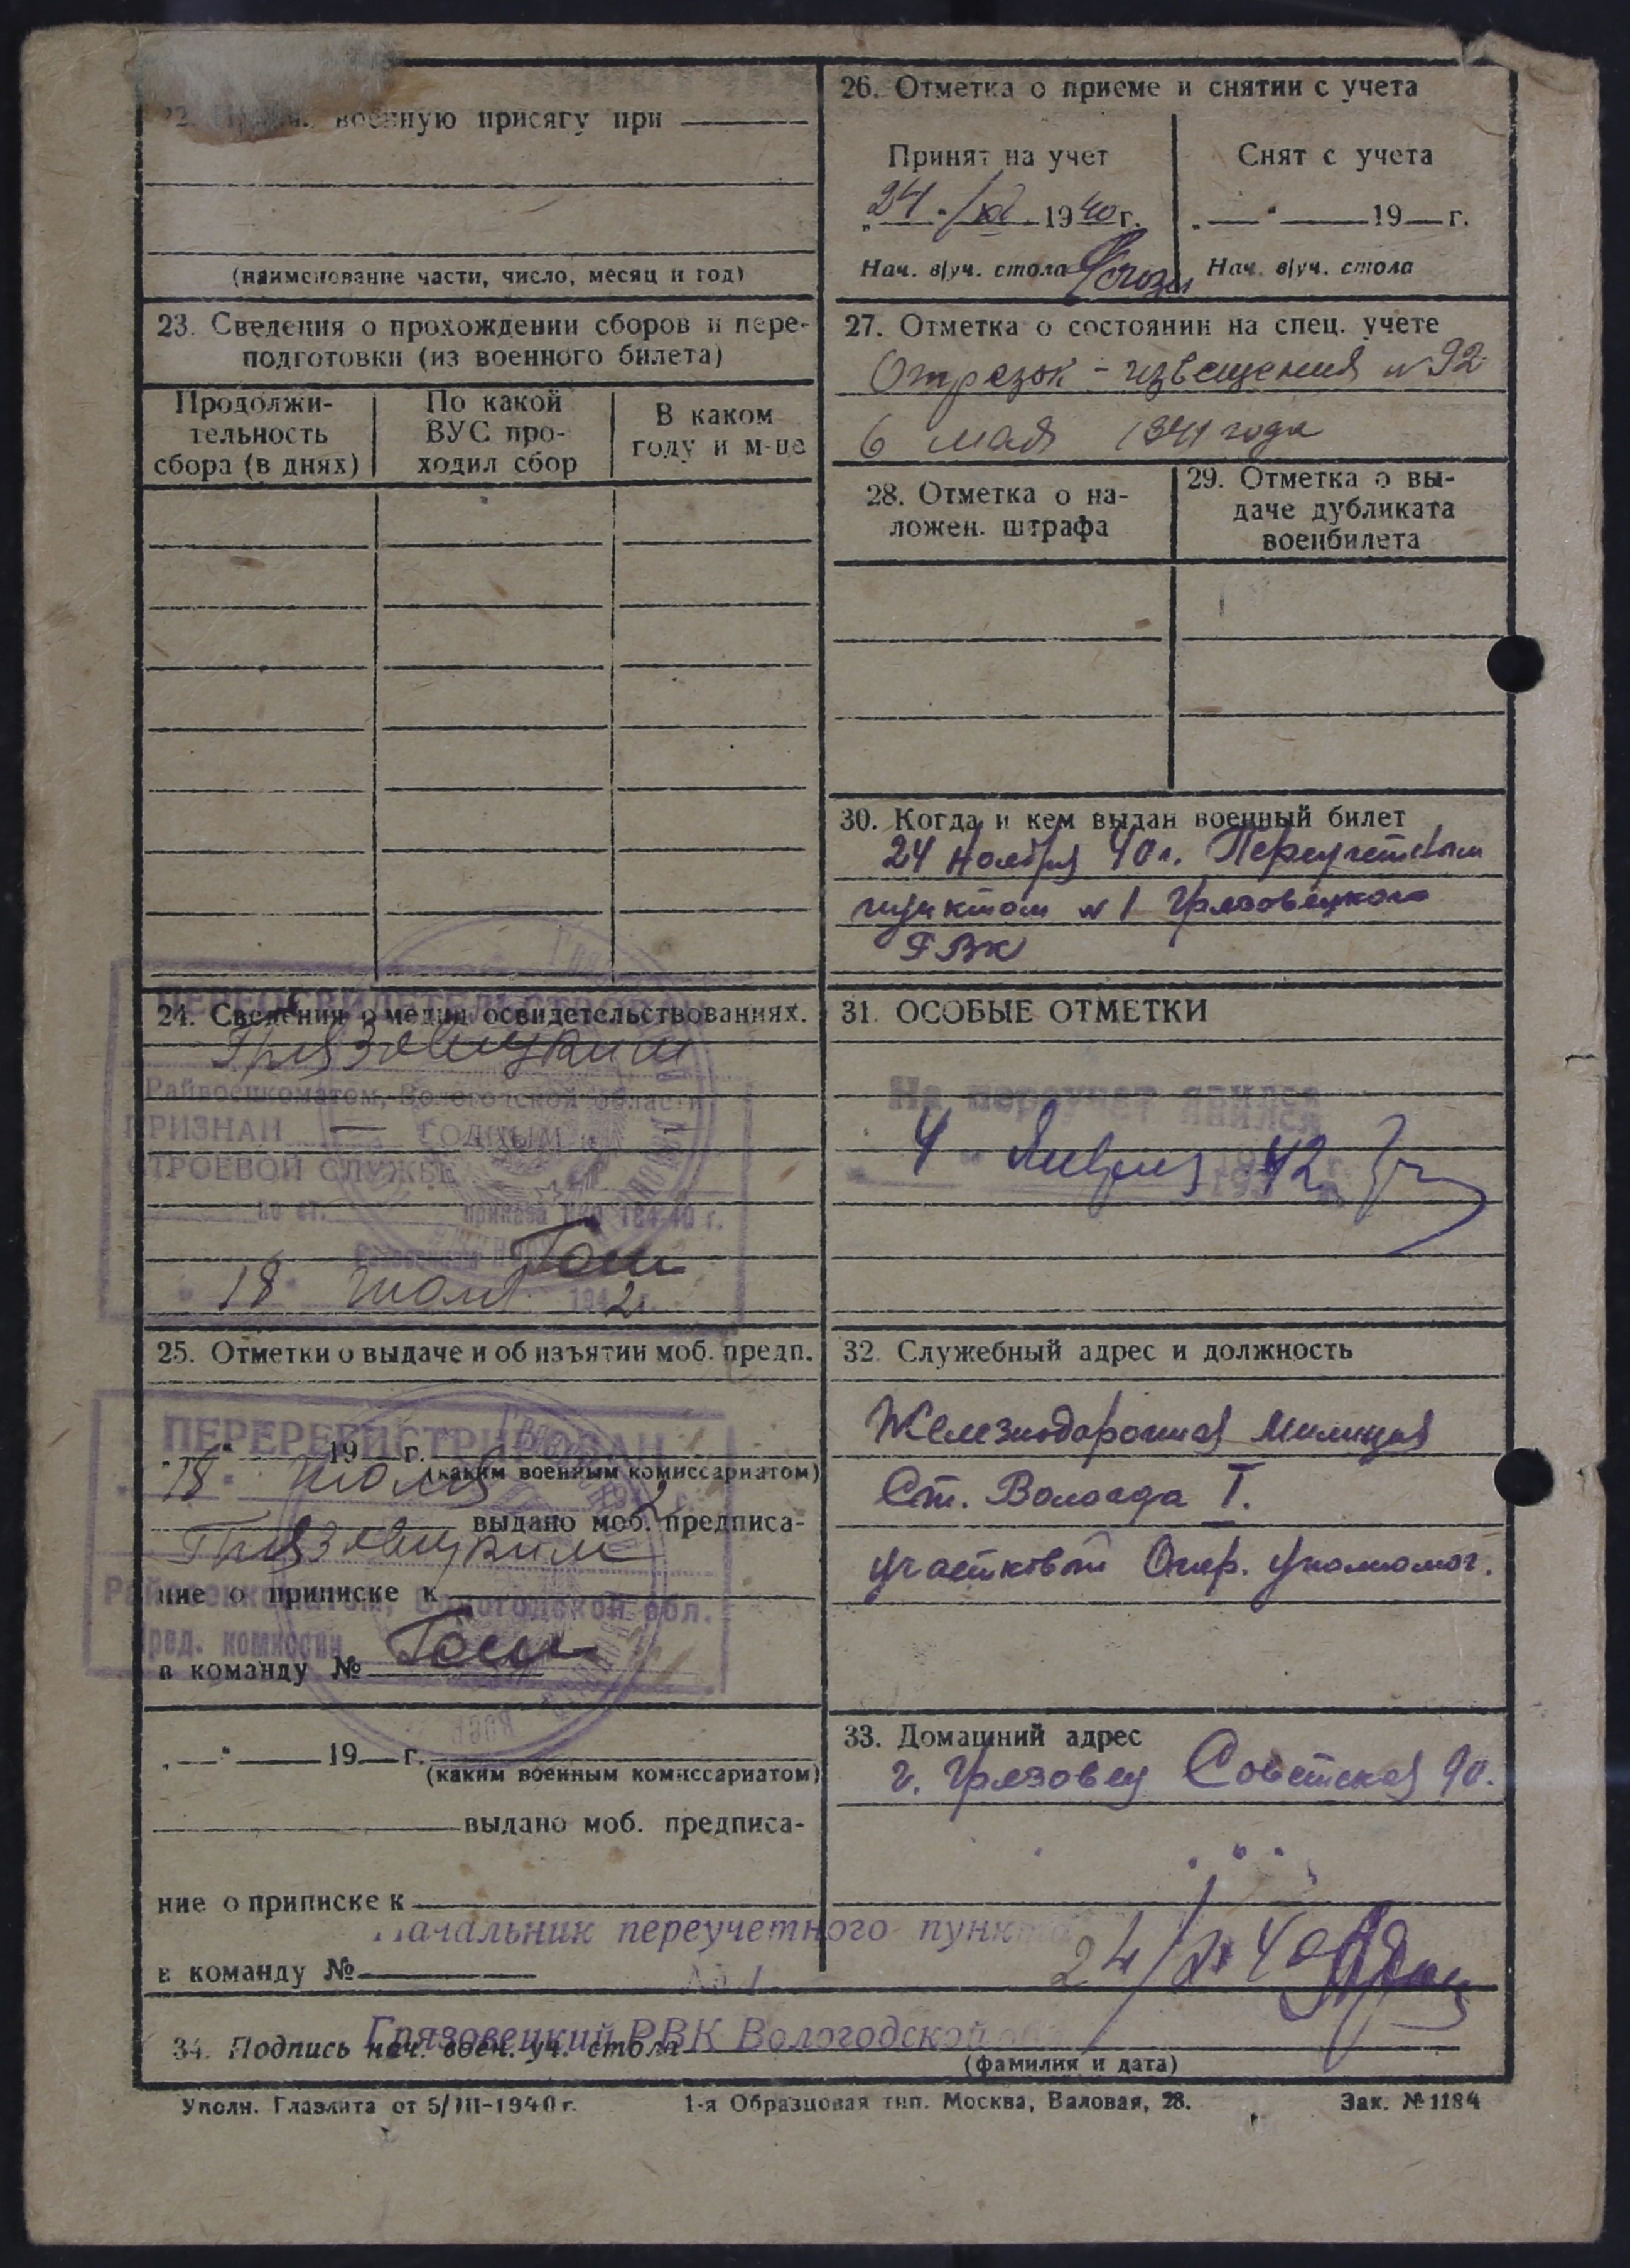 военную присягу при
(наименование части, число, месяц и год)
23. Сведения о прохождении сборов и пере-
подготовки (из военного билета)
Продолжи-
тельность
сбора (в днях)
По какой
ВУС про-
ходил сбор
В каком
году и м-це
ПЕРЕОСВИДЕТЕЛЬСТВОВАН
24. Сведения о медиц. освидетельствованиях.
Грязовецким
Райвоенкоматом, Вологодской области
ПРИЗНАН — ГОДНЫМ к
СТРОЕВОЙ СЛУЖБЕ
по ст. приказа НКО 184-40 г.
"18" июля 1942 г.
25. Отметки о выдаче и об изъятии моб. предп.
ПЕРЕРЕГИСТРИРОВАН
" " 19 г.
(каким военным комиссариатом)
18 июля 2
выдано моб. предписа-
Грязовецким
ние о приписке к
Райвоенкоматом, Вологодской обл.
Пред. комиссии
в команду №
„—" — 19—г.
(каким военным комиссариатом)
выдано моб. предписа-
ние о приписке к
в команду №
26. Отметка о приеме и снятии с учета
Принят на учет
24 XI 1940 г.
Нач. в/уч. стола
Снят с учета
„—" — 19—г.
Нач. в/уч. стола
27. Отметка о состоянии на спец. учете
Отрезок - извещения №92
6 мая 1941 года
28. Отметка о на-
ложен. штрафа
29. Отметка о вы-
даче дубликата
военбилета
30. Когда и кем выдан военный билет
24 Ноября 40 г. Переучетным
пунктом №1 Грязовецкого
РВК
31. ОСОБЫЕ ОТМЕТКИ
На переучет явился
4 " Января 42
32. Служебный адрес и должность
Железнодорожная Милиция
Ст. Вологда I.
участковый Опер. уполномог.
33. Домашний адрес
г. Грязовец Советская 90.
Начальник переучетного пункта
№ 1
24/XI 40
Грязовецкий РВК Вологодской
34. Подпись нач. воен. уч. стола
(фамилия и дата)
Уполн. Главлита от 5/III-1940 г.
1-я Образцовая тип. Москва, Валовая, 28.
Зак. № 1184